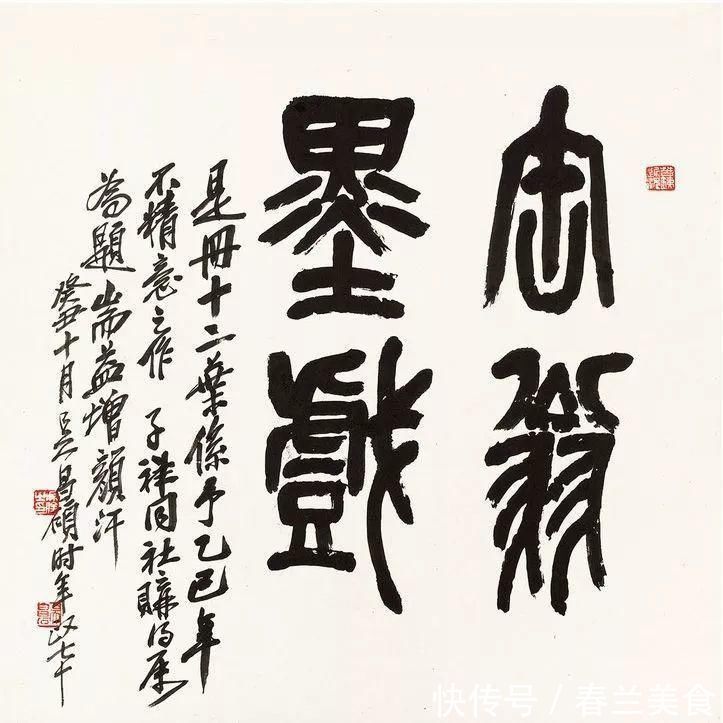 缶翁
墨戲
是冊十二葉係予乙巳年
不精意之作 子祥同社購得屬
為題耑益增顏汗
癸丑十月吳昌碩时年政七十
快传号 / 春兰美食